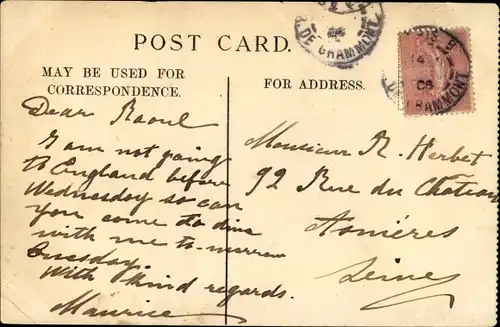 POST CARD.
MAY BE USED FOR
CORRESPONDENCE.
FOR ADDRESS.
R. DE GRAMMONT
06
PARIS-8
14
06
DE GRAMMONT
Dear Raoul
I am not going
to England before
Wednesday so can
you come to dine
with me to-morrow
Tuesday.
With kind regards.
Maurice
Monsieur R. Herbet
92 Rue du Château
Asnières
Seine